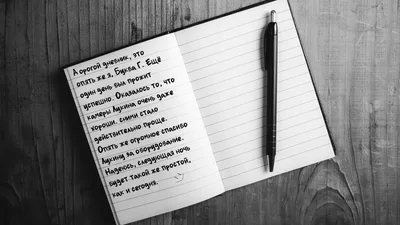 А орогой дневник, это
опять же я, Буква Г. Ещё
один день был прожит
успешно. Оказалось то, что
камеры Лукина очень даже
хороши. сними стало
действительно проще.
Опять же огромное спасибо
Лукину за оборудование.
Надеюсь, следующая ночь
будет такой же простой,
как и сегодня.